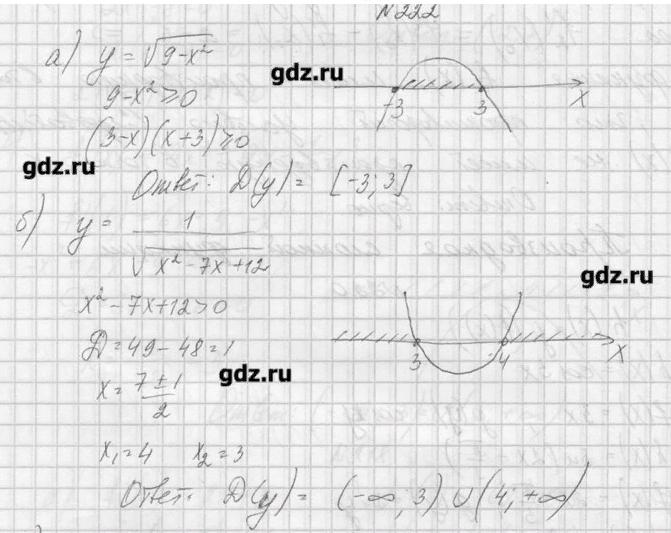 N222
а) y = √(9-x²)
gdz.ru
9-x² ≥ 0
-3 3 x
(3-x)(x+3) ≥ 0
gdz.ru
Ответ: D(y) = [-3; 3]
б) y = 1/√(x² - 7x + 12)
gdz.ru
x² - 7x + 12 > 0
D = 49 - 48 = 1
3 4 x
x = (7 ± 1)/2
gdz.ru
x₁ = 4 x₂ = 3
Ответ: D(y) = (-∞; 3) ∪ (4; +∞)